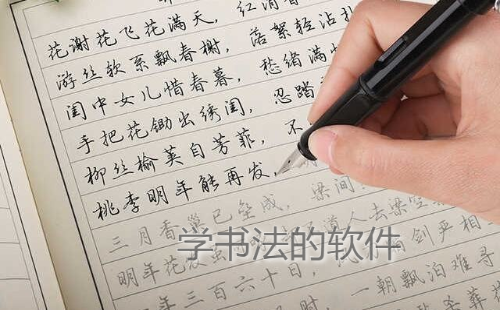 花谢花飞花满天，红消香
游丝软系飘春榭，落絮轻沾扑
闺中女儿惜春暮，愁绪满
手把花锄出绣闺，忍踏
柳丝榆英自芳菲，不
桃李明年能再发，
三月香巢已垒成，梁间
明年花发虽 道人去梁空
年三百六十日， 剑严相
时，一朝飘泊难寻
杀葬花
学书法的软件